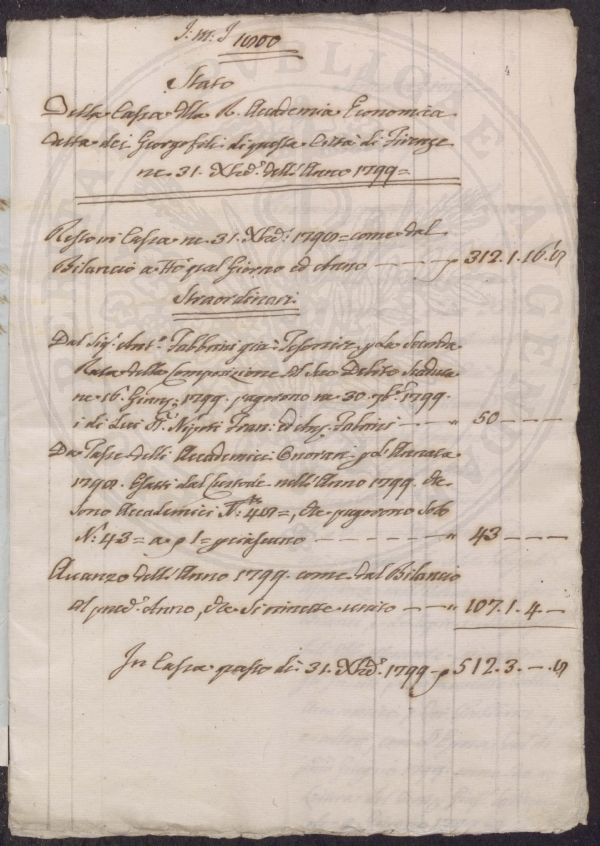 J: M: J 1800
Stato
Della Cassa della R. Accademia Economica
detta dei Georgofili di questa Città di Firenze
ne 31. Xbre. dell'Anno 1799=
Resto in Cassa ne 31. Xbre: 1798= come dal
Bilancio a tto qual Giorno ed Anno 312.1.16.8
Straordinari
Dal Sigr. Antº. Fabbrini già Tesorier. p la Seconda
Rata della Composizione del suo Debito Scaduta
ne 16. Giug: 1799. pagorono ne 30. 9bre. 1799.
i di Lui Nipoti Fran: ed Ang. Fabbrini 50
Da Tasse delli Accademici Onorari p l'Annata
1798. Esatti dal Custode nell'Anno 1799. che
sono Accademici Nº: 48=, che pagorono solo
Nº: 43= a p 1= p ciascuno 43
Avanzo dell'Anno 1799. come dal Bilancio
di pred. Anno, che si rimette unito 107.1.4
In Cassa questo dì 31. Xbre. 1799 512.3.-.8